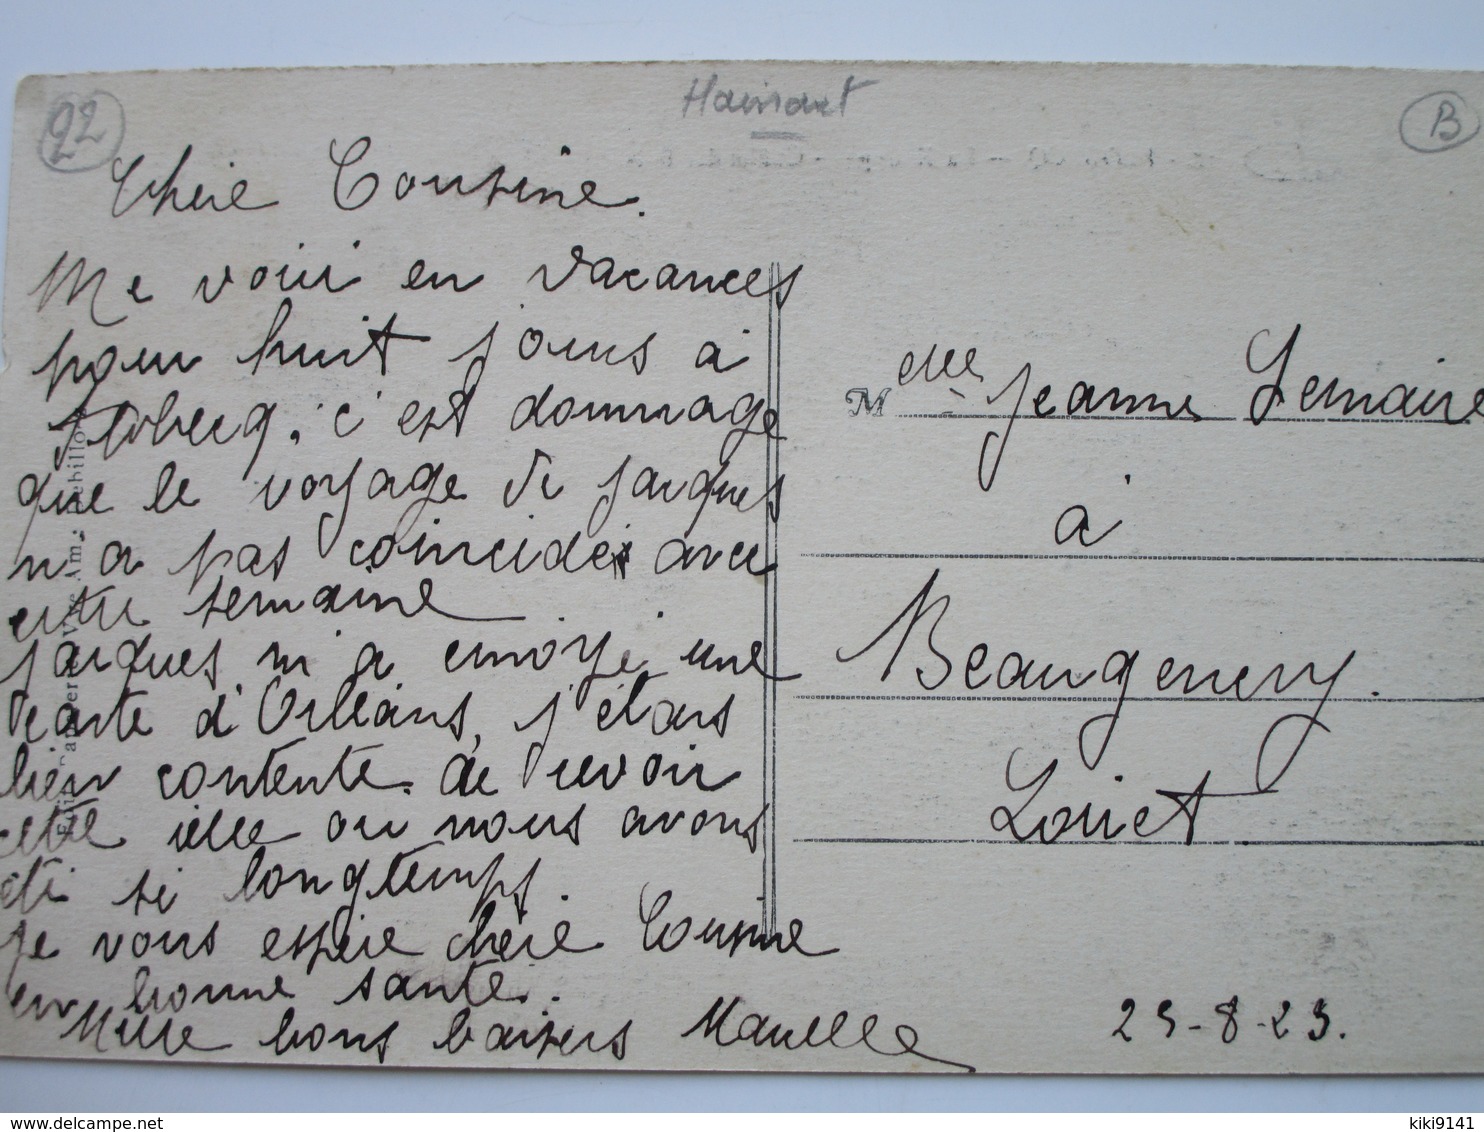 Hainaut
22
B
Chère Cousine.
Me voici en vacances
pour huit jours à
Flobecq; c'est dommage
que le voyage de Jacques
n'a pas coincidé avec
cette semaine
Jacques m'a envoyé une
carte d'Orléans, j'étais
bien contente de revoir
cette ville ou nous avons
été si longtemps.
Je vous espère chère Cousine
en bonne santé.
Mille bons baisers Marcelle
Melle Jeanne Lemaire
à
Beaugency.
Loiret.
25-8-23.
delcampe.net
kiki9141